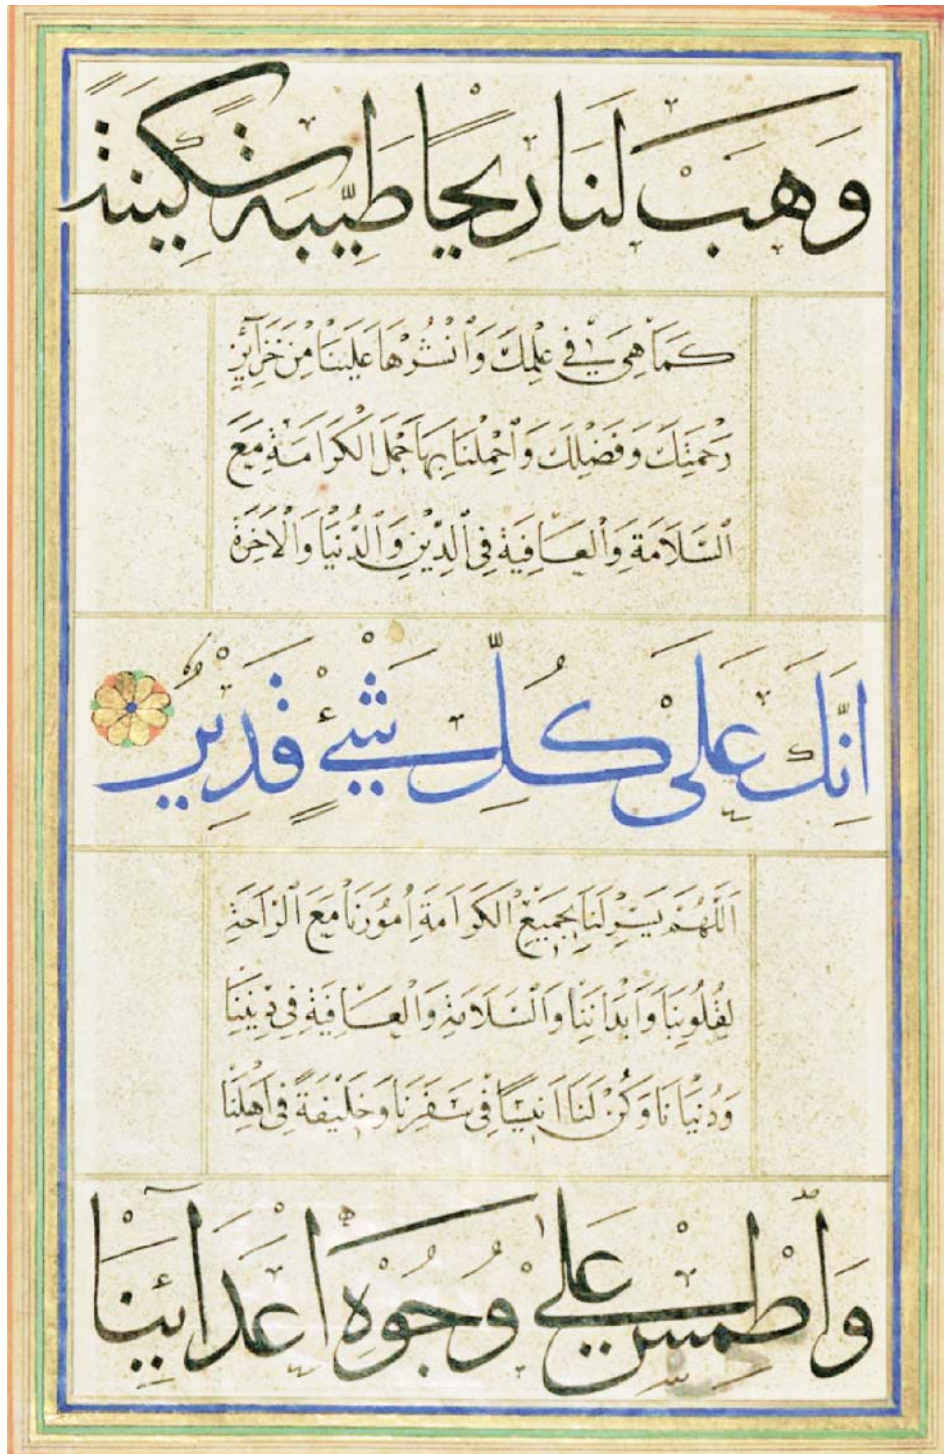 وَهَبْ لَنَا رِيحًا طَيِّبَةً سَكِينَةً
كَمَا هِيَ فِي عِلْمِكَ وَانْشُرْهَا عَلَيْنَا مِنْ خَزَآئِنِ
رَحْمَتِكَ وَفَضْلِكَ وَاحْمِلْنَا بِهَا حَمْلَ الْكَرَامَةِ مَعَ
السَّلَامَةِ وَالْعَافِيَةِ فِي الدِّيْنِ وَالدُّنْيَا وَالْاٰخِرَةِ
اِنَّكَ عَلَى كُلِّ شَيْءٍ قَدِيْرٌ
اَللّٰهُمَّ يَسِّرْ لَنَا بِجَمِيْعِ الْكَرَامَةِ اُمُوْرَنَا مَعَ الرَّاحَةِ
لِقُلُوْبِنَا وَاَبْدَانِنَا وَالسَّلَامَةِ وَالْعَافِيَةِ فِي دِيْنِنَا
وَدُنْيَانَا وَكُنْ لَنَا اَنِيْسًا فِي سَفَرِنَا وَخَلِيْفَةً فِي اَهْلِنَا
وَاطْمِسْ عَلَى وُجُوْهِ اَعْدَآئِنَا